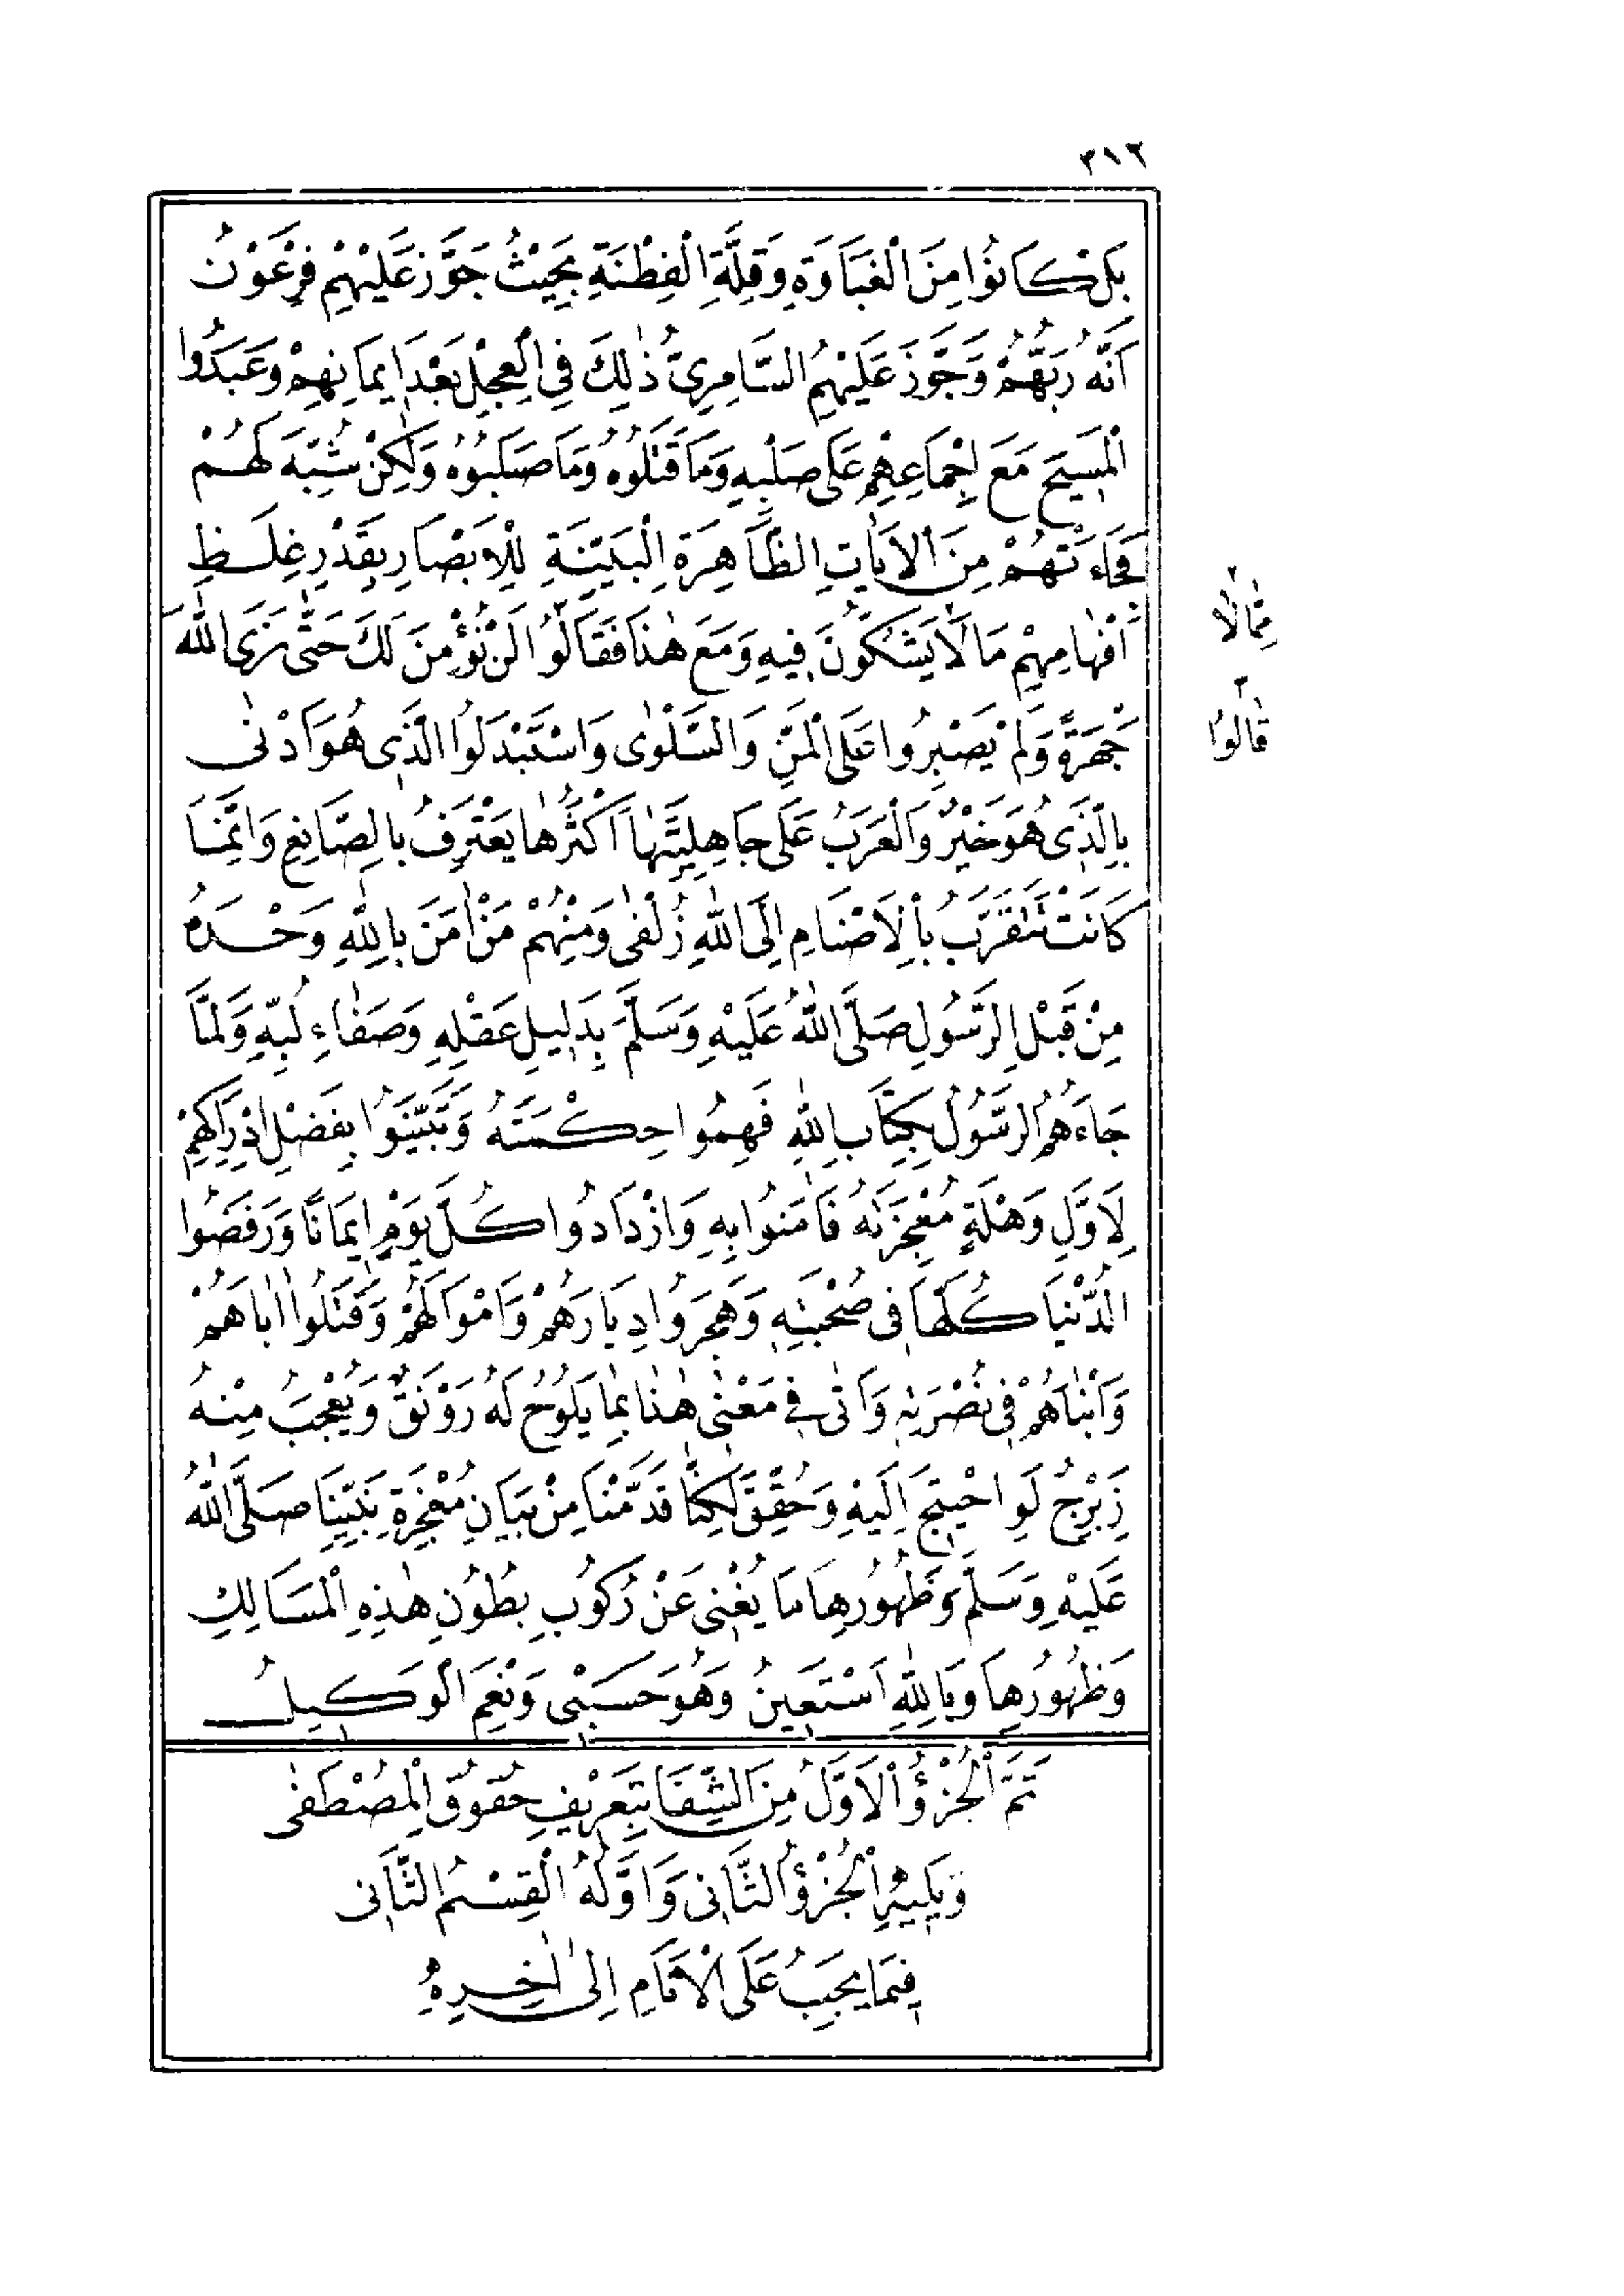 ٣١٦
بَلْ كَانُوا مِنَ الْغَبَاوَةِ وَقِلَّةِ الْفِطْنَةِ بِحَيْثُ جَوَّزَ عَلَيْهِمْ فِرْعَوْنُ
اَنَّهُ رَبُّهُمْ وَجَوَّزَ عَلَيْهِمُ السَّامِرِىُّ ذٰلِكَ فِى الْعِجْلِ بَعْدَ اِيمَانِهِمْ وَعَبَدُوا
الْمَسِيحَ مَعَ اِجْمَاعِهِمْ عَلَى صَلْبِهِ وَمَا قَتَلُوهُ وَمَا صَلَبُوهُ وَلٰكِنْ شُبِّهَ لَهُمْ
فَجَاءَتْهُمْ مِنَ الْاٰيَاتِ الظَّاهِرَةِ الْبَيِّنَةِ لِلْاَبْصَارِ بِقَدْرِ غِلَظِ
اَفْهَامِهِمْ مَا لَا يَشُكُّونَ فِيهِ وَمَعَ هٰذَا فَقَالُوا لَنْ نُؤْمِنَ لَكَ حَتّٰى نَرَى اللّٰهَ
جَهْرَةً وَلَمْ يَصْبِرُوا عَلَى الْمَنِّ وَالسَّلْوٰى وَاسْتَبْدَلُوا الَّذِى هُوَ اَدْنٰى
بِالَّذِى هُوَ خَيْرٌ وَالْعَرَبُ عَلَى جَاهِلِيَّتِهَا اَكْثَرُهَا يَعْتَرِفُ بِالصَّانِعِ وَاِنَّمَا
كَانَتْ تَتَقَرَّبُ بِالْاَصْنَامِ اِلَى اللّٰهِ زُلْفٰى وَمِنْهُمْ مَنْ اٰمَنَ بِاللّٰهِ وَحْدَهُ
مِنْ قَبْلِ الرَّسُولِ صَلَّى اللّٰهُ عَلَيْهِ وَسَلَّمَ بِدَلِيلِ عَقْلِهِ وَصَفَاءِ لُبِّهِ وَلَمَّا
جَاءَهُمُ الرَّسُولُ بِكِتَابِ اللّٰهِ فَهِمُوا حِكْمَتَهُ وَتَبَيَّنُوا بِفَضْلِ اِدْرَاكِهِمْ
لِاَوَّلِ وَهْلَةٍ مُعْجِزَتَهُ فَاٰمَنُوا بِهِ وَازْدَادُوا كُلَّ يَوْمٍ اِيمَانًا وَرَفَضُوا
الدُّنْيَا كُلَّهَا فِى صُحْبَتِهِ وَهَجَرُوا دِيَارَهُمْ وَاَمْوَالَهُمْ وَقَتَلُوا اٰبَاهُمْ
وَاَبْنَاهُمْ فِى نُصْرَتِهِ وَاَتٰى فِى مَعْنٰى هٰذَا بِمَا يَلُوحُ لَهُ رَوْنَقٌ وَيُعْجِبُ مِنْهُ
زِبْرِجٌ لَوِ احْتِيجَ اِلَيْهِ وَحُقِّقَ لٰكِنَّا قَدَّمْنَا مِنْ بَيَانِ مُعْجِزَةِ نَبِيِّنَا صَلَّى اللّٰهُ
عَلَيْهِ وَسَلَّمَ وَظُهُورِهَا مَا يُغْنِى عَنْ رُكُوبِ بُطُونِ هٰذِهِ الْمَسَالِكِ
وَظُهُورِهَا وَبِاللّٰهِ اَسْتَعِينُ وَهُوَ حَسْبِى وَنِعْمَ الْوَكِيلُ
تَمَّ الْجُزْؤُ الْاَوَّلُ مِنَ الشِّفَا بِتَعْرِيفِ حُقُوقِ الْمُصْطَفٰى
وَيَلِيهِ الْجُزْؤُ الثَّانِى وَاَوَّلُهُ الْقِسْمُ الثَّانِى
فِيمَا يَجِبُ عَلَى الْاَنَامِ اِلٰى اٰخِرِهِ
٢
مِمَّا لَا
٢
قَالُوا